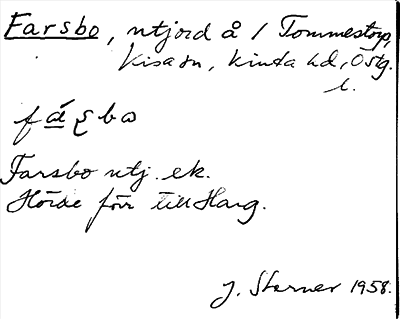 Farsbo, utjord å 1 Tommestorp,
Kisa sn, Kinda hd, Östg.
l.
fa̲ʂbω
Farsbo utj. ek.
Hörde förr till Harg.
J. Sterner 1958.